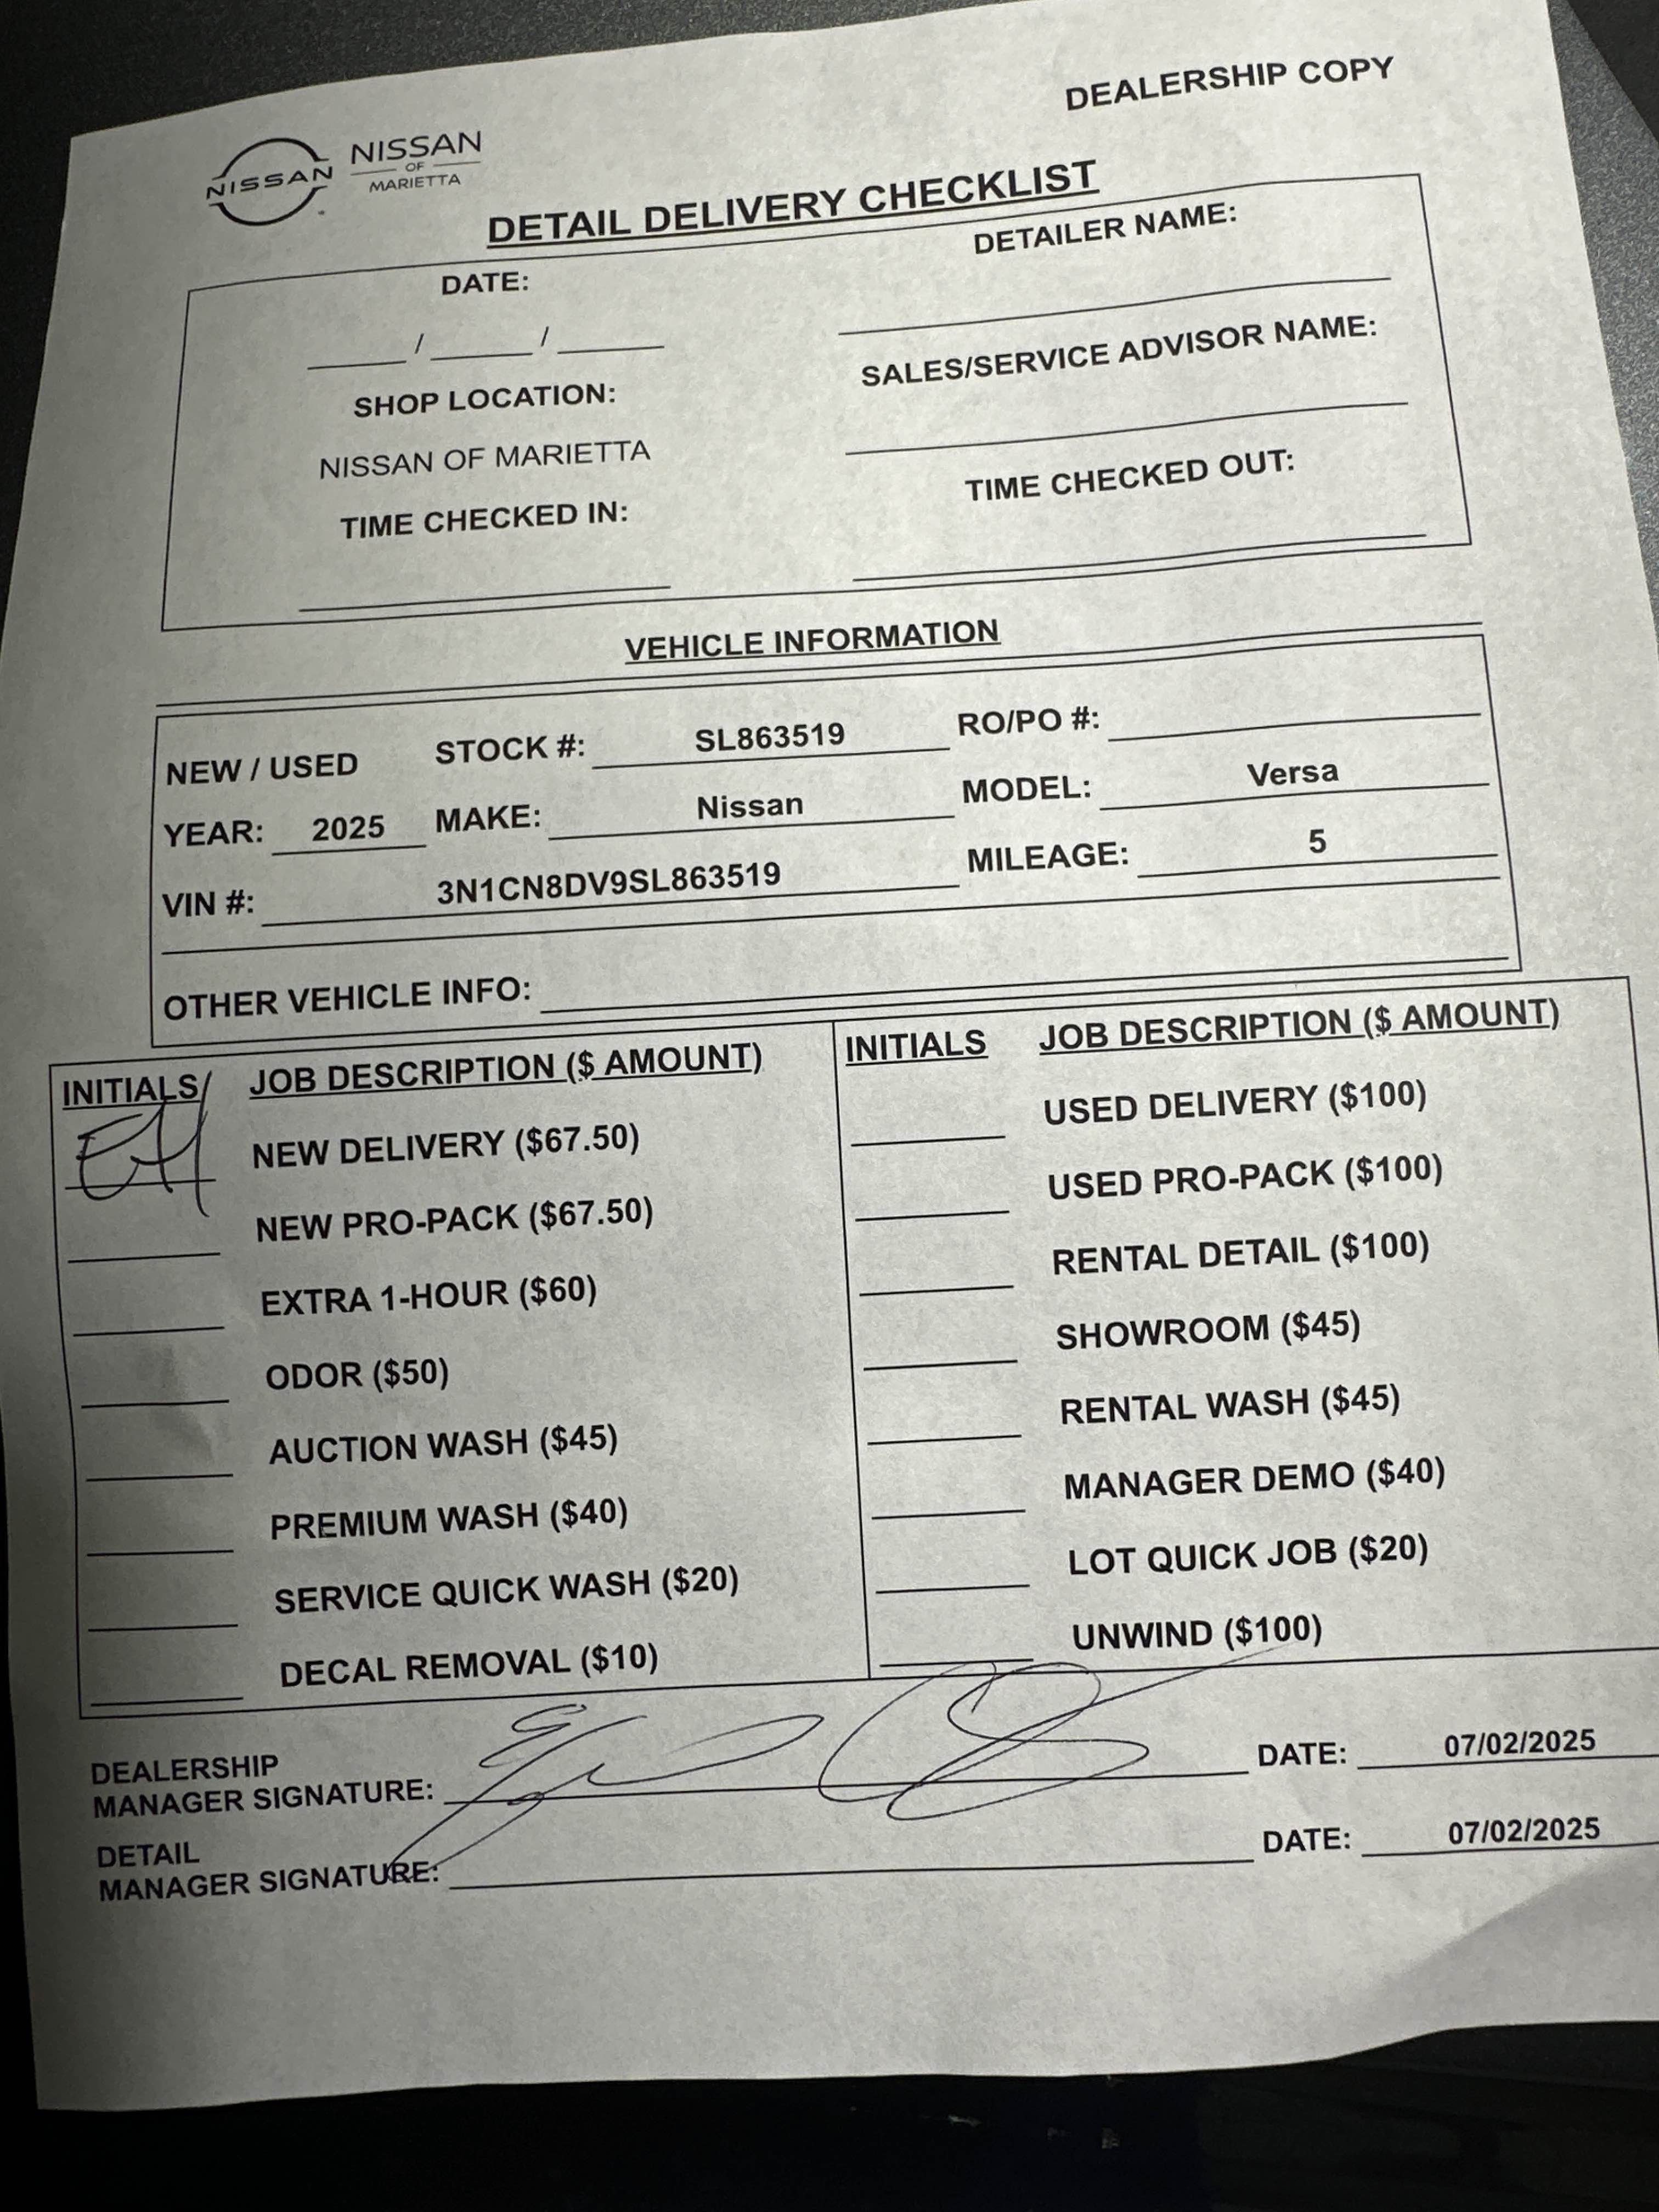 DEALERSHIP COPY
NISSAN
NISSAN
OF
MARIETTA
DETAIL DELIVERY CHECKLIST
DATE:
DETAILER NAME:
____/____/____
SALES/SERVICE ADVISOR NAME:
SHOP LOCATION:
NISSAN OF MARIETTA
TIME CHECKED IN:
TIME CHECKED OUT:
VEHICLE INFORMATION
NEW / USED STOCK #: SL863519 RO/PO #:
YEAR: 2025 MAKE: Nissan MODEL: Versa
VIN #: 3N1CN8DV9SL863519 MILEAGE: 5
OTHER VEHICLE INFO:
INITIALS JOB DESCRIPTION ($ AMOUNT)
EH NEW DELIVERY ($67.50)
NEW PRO-PACK ($67.50)
EXTRA 1-HOUR ($60)
ODOR ($50)
AUCTION WASH ($45)
PREMIUM WASH ($40)
SERVICE QUICK WASH ($20)
DECAL REMOVAL ($10)
INITIALS JOB DESCRIPTION ($ AMOUNT)
USED DELIVERY ($100)
USED PRO-PACK ($100)
RENTAL DETAIL ($100)
SHOWROOM ($45)
RENTAL WASH ($45)
MANAGER DEMO ($40)
LOT QUICK JOB ($20)
UNWIND ($100)
DEALERSHIP
MANAGER SIGNATURE: DATE: 07/02/2025
DETAIL
MANAGER SIGNATURE: DATE: 07/02/2025